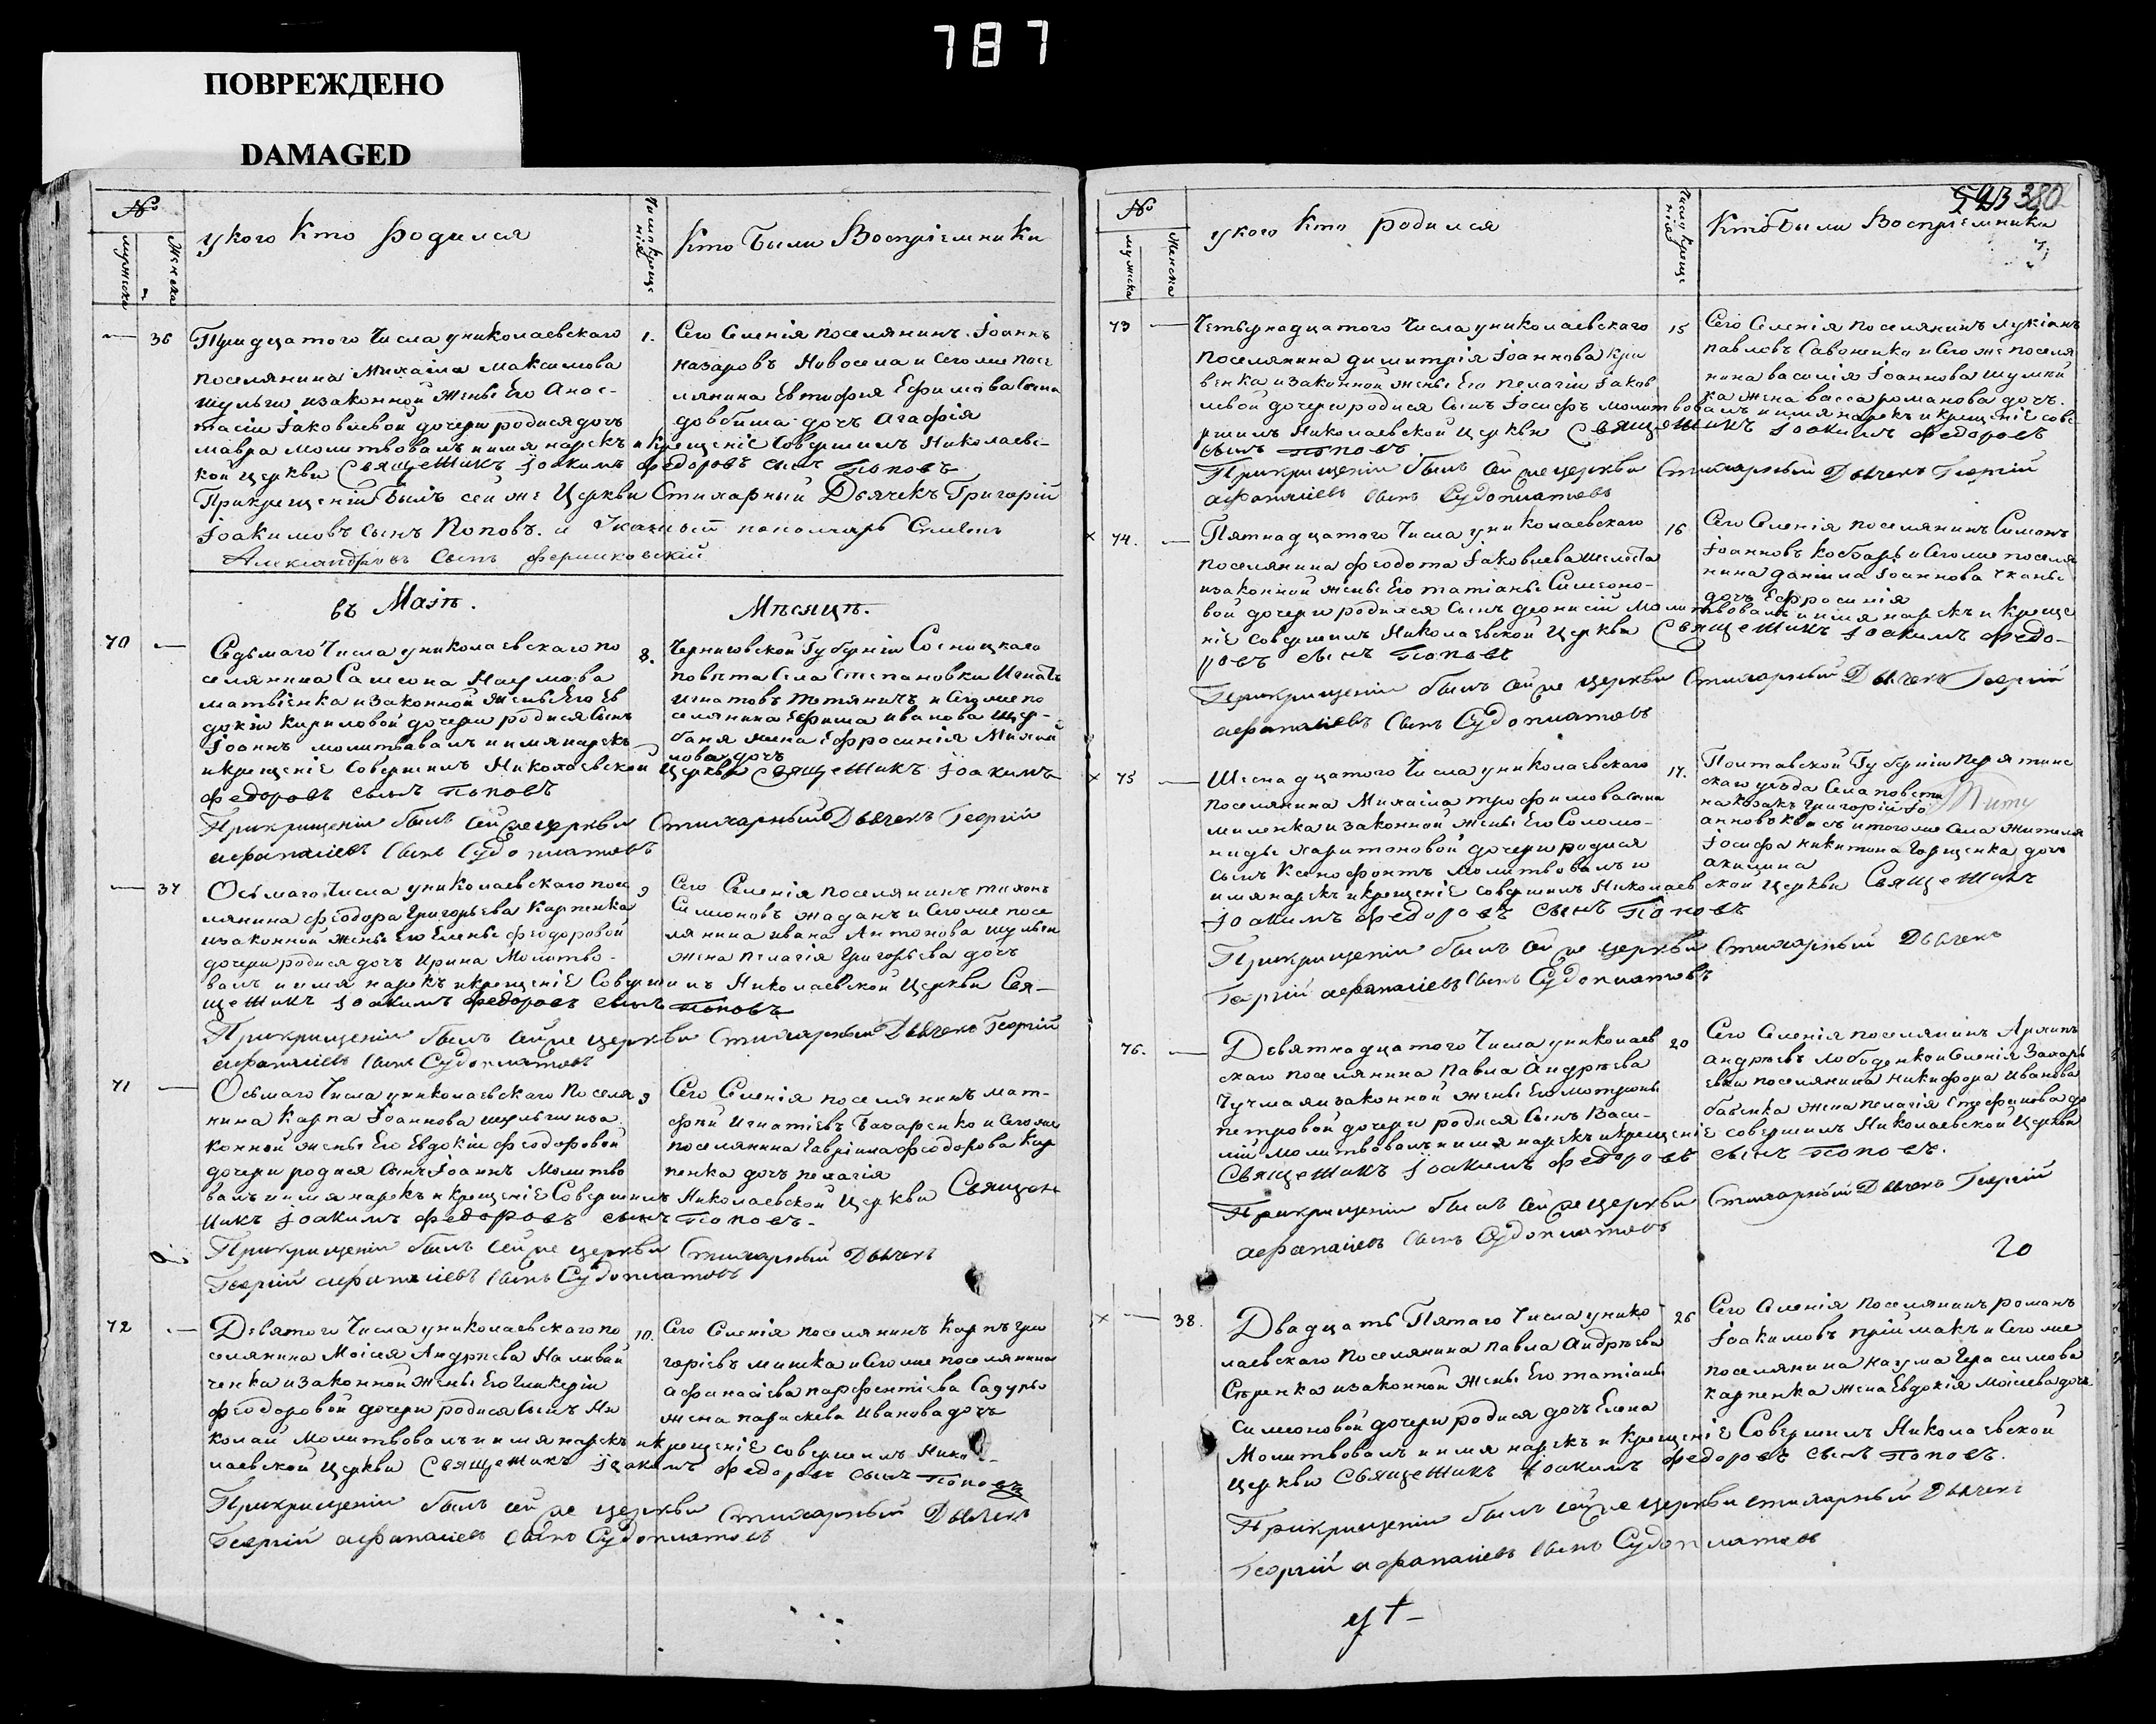 787
ПОВРЕЖДЕНО
DAMAGED
№
мужеска
Женска
укого Кто родился
Число Креще
нія
Кто Были Воспріемники
36
Тридцатого Числа униколаевскаго
поселянина Михаила Максимова
Шульги изаконной жены Его Анас-
тасіи Іаковлевой дочери родися дочь
мавра молитвовалъ иимя нарекъ и Крещеніе Совершилъ Николаевс-
кой церкви Священникъ Іоакимъ Федоровъ сынъ Поповъ
Прикрещеніи былъ сей же Церкви Стихарный Дьячекъ Григорій
Іоакимовъ сынъ Поповъ. и пономарь Симеонъ
Александровъ сынъ
1.
Сего Селенія поселянинъ Іоаннъ
назаровъ Новосела и Сегоже посе
лянина Евтифея Ефимова сына
довбиша дочь Агафія
въ Маіѣ.
Мѣсяцѣ.
70
Седьмаго Числа униколаевскаго по
селянина Самсона Наумова
матвіенка изаконной жены Его Ев
докіи Кириловой дочери родися сынъ
Іоаннъ молитвавалъ иимянарекъ
икрещеніе Совершилъ Николаевской Церкви Священникъ Іоакимъ
Федоровъ сынъ Поповъ
Прикрищеніи былъ сей же церкви Стихарный Дьячекъ Георгій
афанасіевъ сынъ Судоплатовъ
8.
Черниговской Губерніи Сосницкаго
повѣта Села Степановки Игнатъ
игнатовъ и Сегоже по
селянина Ефима иванова Щер-
баня жена Ефросинія Михаи
лова дочь
37
Осьмаго Числа униколаевскаго посе
лянина Феодора Григорьева Карпенка
изаконной жены Его Елены Феодоровой
дочери родися дочь Ирина Молитво-
валъ иимя нарекъ икрещеніе Совершилъ Николаевской Церкви Свя-
щенникъ Іоакимъ Федоровъ сынъ Поповъ
Прикрищеніи былъ сей же церкви Стихарный Дьячекъ Георгій
афанасіевъ сынъ Судоплатовъ
9
Сего Селенія поселянинъ тихонъ
Симеоновъ жаданъ и Сегоже посе
лянина ивана Антонова шульги
жена пелагія Григорьева дочь
71
Осьмаго Числа униколаевскаго Поселя
нина Карпа Іоаннова шульги иза
конной жены Его Евдокіи Феодоровой
дочери родися сынъ Іоаннъ Молитво
валъ иимя нарекъ и крещеніе Совершилъ Николаевской Церкви Священ
никъ Іоакимъ Федоровъ сынъ Поповъ.
Прикрищеніи былъ сей же церкви Стихарный Дьячекъ
Георгій афанасіевъ сынъ Судоплатовъ
9
Сего Селенія поселянинъ мат-
фѣй Игнатіевъ Бахаренко и Сегоже
поселянина Гавріила Феодорова Кар
пенка дочь пелагія
72
Девятого Числа униколаевскаго по
селянина Моисея Андреева Наливай
ченка изаконной жены Его Гликеріи
Феодоровой дочери родися сынъ Ни
колай Молитвовалъ иимя нарекъ икрещеніе совершилъ Нико-
лаевской Церкви Священникъ Іоакимъ Федоровъ сынъ Поповъ
Прикрищеніи былъ сей же церкви Стихарный Дьячекъ
Георгій афанасіевъ сынъ Судоплатовъ
10.
Сего Селенія поселянинъ Карпъ Гри
горіевъ мишка и Сегоже поселянина
афанасіева парфентіева Садуры
жена параскева Иванова дочь
№
мужеска
Женска
укого Кто родился
Число Креще
нія
Кто были Воспріемники
380
73
Четырнадцатого Числа униколаевскаго
поселянина димитрія Іоаннова кри
венка изаконной жены Его пелагіи Іаков
левой дочери родися сынъ Іосифъ молитвовалъ иимя нарекъ и крещеніе сове
ршилъ Николаевской церкви Священникъ Іоакимъ Федоровъ
сынъ Поповъ
Прикрищеніи былъ сей же церкви Стихарный Дьячекъ Георгій
афанасіевъ сынъ Судоплатовъ
15
Сего Селенія поселянинъ лукіанъ
павловъ Савоненко и Сегоже поселя
нина василія Іоаннова шумей
ка жена васса романова дочь.
74.
Пятнадцатого Числа униколаевскаго
поселянина Феодота Іаковлева шелеста
изаконной жены Его татіаны Симеоно-
вой дочери родился сынъ діонисій Молитвовалъ иимя нарекъ и креще
ніе Совершилъ Николаевской Церкви Священникъ Іоакимъ Федо-
ровъ сынъ Поповъ
Прикрищеніи былъ сей же церкви Стихарный Дьячекъ Георгій
афанасіевъ сынъ Судоплатовъ
16
Сего Селенія поселянинъ Симонъ
Іоанновъ кобзарь и Сегоже поселя
нина даніила Іоаннова
дочь Ефросинія
75
Шеснадцатого Числа униколаевскаго
поселянина Михаила трофимова сына
миленка изаконной жены Его Соломо-
ниды харитоновой дочери родися
сынъ Ксенофонтъ молитвовалъ и
имянарекъ икрещеніе совершилъ Николаевской Церкви Священникъ
Іоакимъ Федоровъ сынъ Поповъ
Прикрищеніи былъ сей же церкви Стихарный Дьячекъ
Георгій афанасіевъ сынъ Судоплатовъ
17.
Полтавской Губерніи Пирятинс
скаго уѣзда Села
на козакъ Григорій Іо
анновъ итогоже Села жителя
Іосифа никитина Горщенка дочь
акилина
76.
Девятнадцатого Числа униколаев
скаго поселянина Павла Андрѣева
Чучмая изаконной жены Его мотроны
петровой дочери родися сынъ Васи-
лій молитвовалъ иимя нарекъ икрещеніе совершилъ Николаевской Церкви
Священникъ Іоакимъ Федоровъ сынъ Поповъ.
Прикрищеніи былъ сей же церкви Стихарный Дьячекъ Георгій
афанасіевъ сынъ Судоплатовъ
20
Сего Селенія поселянинъ Архипъ
андрѣевъ лободенко и Селенія Захарь
евки поселянина никифора Иванова
бабенка жена пелагія Стефанова до
20
38.
Двадцать Пятаго Числа унико-
лаевскаго Поселянина Павла Андрѣева
Сѣренка изаконной жены Его татіаны
Симеоновой дочери родися дочь Елена
Молитвовалъ иимя нарекъ и Крещеніе Совершилъ Николаевской
церкви Священникъ Іоакимъ Федоровъ сынъ Поповъ.
Прикрищеніи былъ сей же церкви стихарный Дьячекъ
Георгій афанасіевъ сынъ Судоплатовъ
26
Сего Селенія Поселянинъ романъ
Іоакимовъ пріймакъ и Сегоже
поселянина наума Герасимова
карпенка жена Евдокія Моісеева дочь